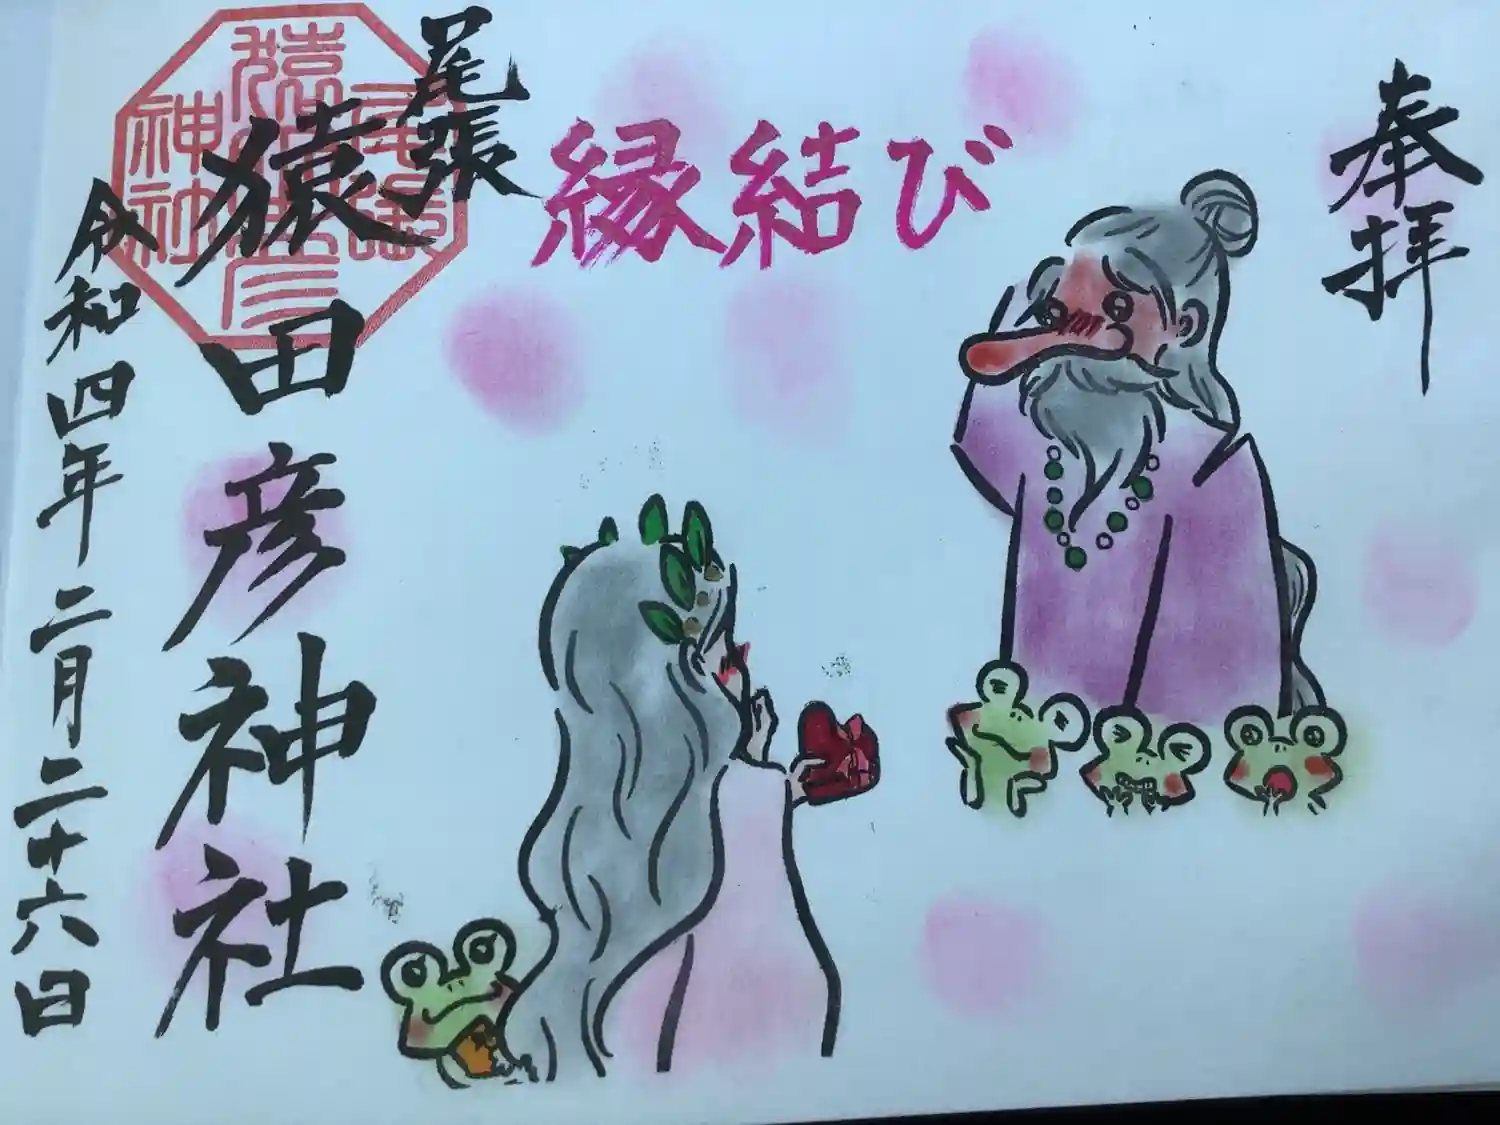 奉拝
縁結び
尾張
猿田彦神社
令和四年二月二十六日
尾張
猿田彦
神社